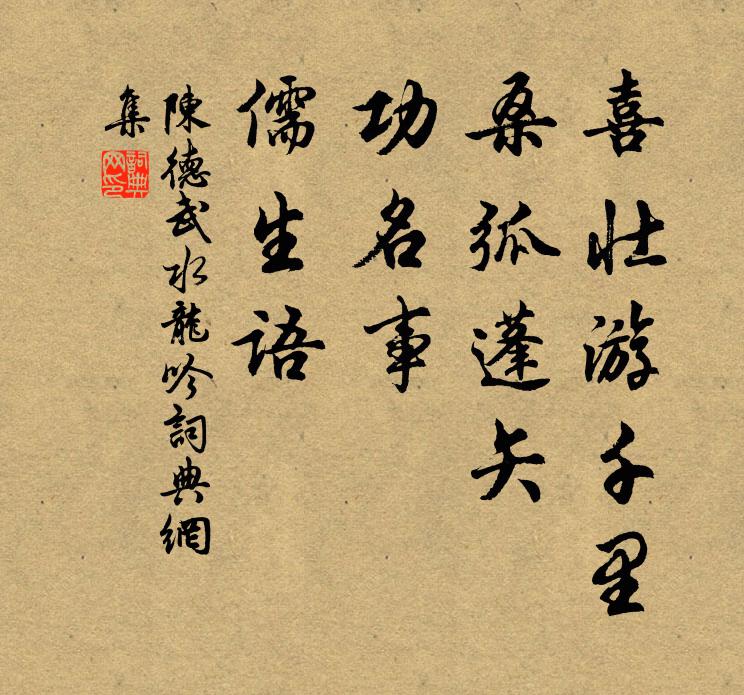 喜壮游千里
桑弧蓬矢
功名事
儒生語
陳德武水龍吟詞典網
集
詞典
网印